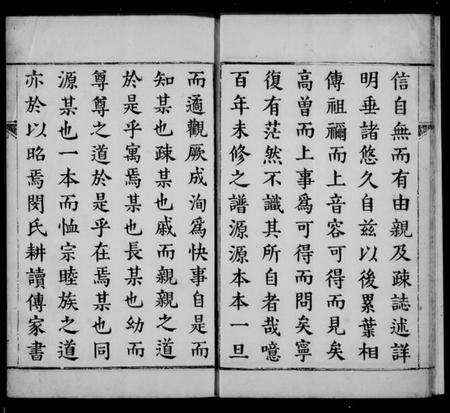 信自無而有由親及疎誌述詳
明垂諸悠久自兹以後累葉相
傳祖禰而上音容可得而見矣
高曾而上事爲可得而問矣寧
復有茫然不識其所自者哉噫
百年未修之譜源源本本一旦
而遹觀厥成洵爲快事自是而
知某也疎某也戚而親親之道
於是乎寓焉某也長某也幼而
尊尊之道於是乎在焉某也同
源某也一本而恤宗睦族之道
亦於以昭焉閔氏耕讀傳家書